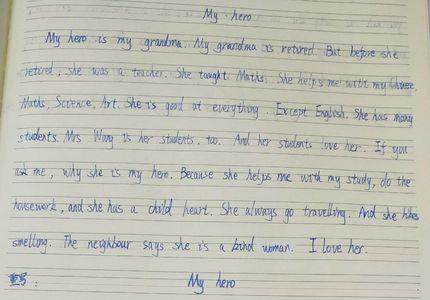 My hero
My hero is my grandma. My grandma is retired. But before she
retired, she was a teacher. She taught Maths. She helps me with my Chinese,
Maths, Science, Art. She is good at everything. Except English. She has many
students. Mrs Wang is her students. too. And her students love her. If you
ask me, why she is my hero. Because she helps me with my study, do the
housework, and she has a child heart. She always go travelling. And she likes
smelling. The neighbour says she is a kind woman. I love her.
重写: My hero